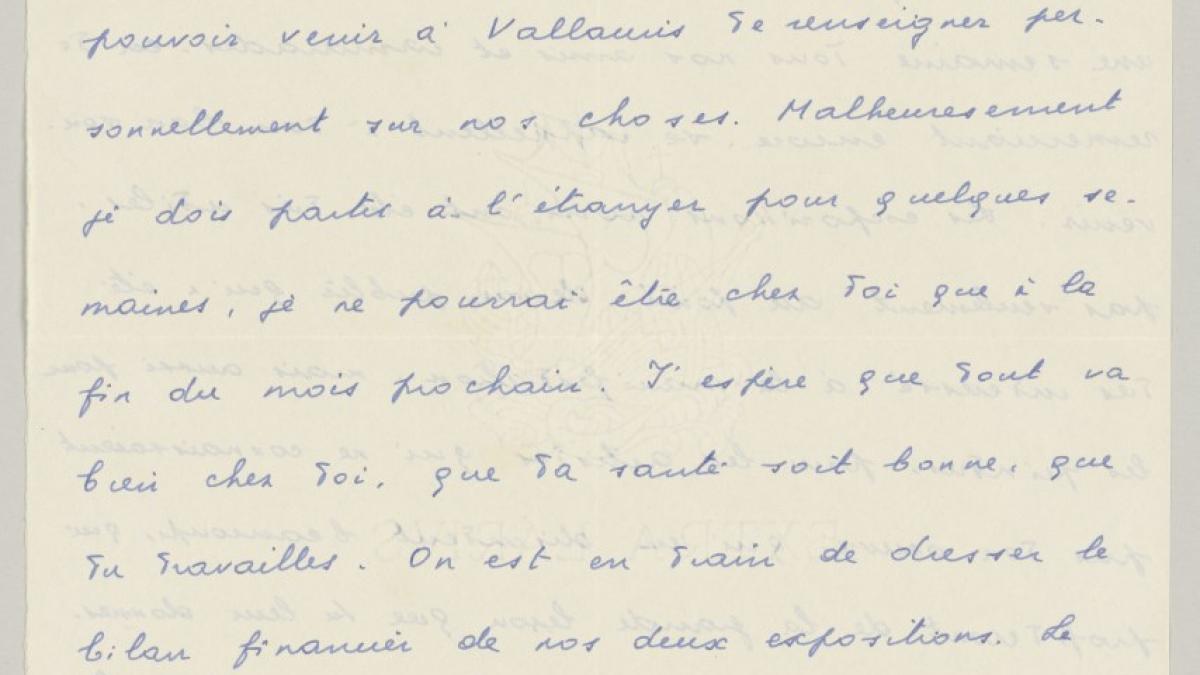 pouvoir venir à Vallauris te renseigner per-
sonnellement sur nos choses. Malheuresement
je dois partir à l'étranger pour quelques se-
maines, je ne pourrai être chez toi que à la
fin du mois prochain. J'espère que tout va
bien chez toi, que ta santé soit bonne, que
tu travailles. On est en train de dresser le
bilan financier de nos deux expositions. Le